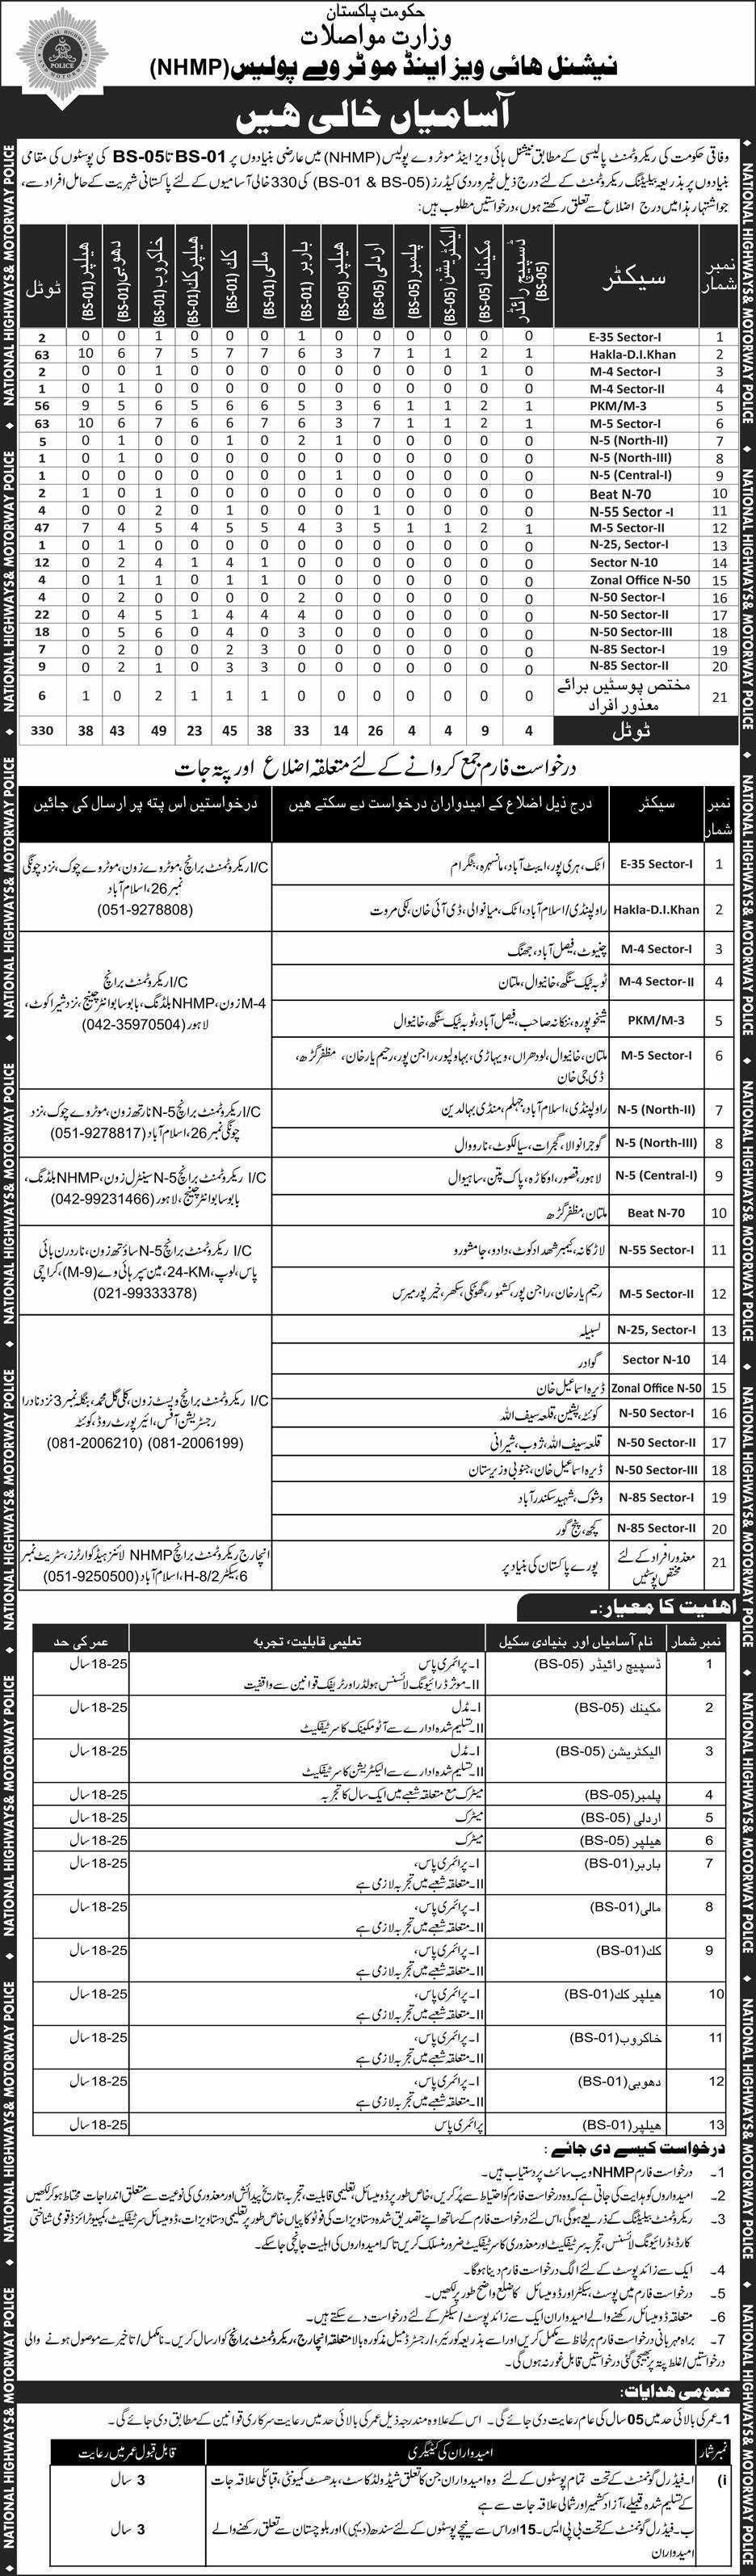 حکومت پاکستان
وزارت مواصلات
نیشنل ہائی ویز اینڈ موٹر وے پولیس (NHMP)
NATIONAL HIGHWAYS & MOTORWAY POLICE
آسامیاں خالی ہیں
وفاقی حکومت کی ریکروٹمنٹ پالیسی کے مطابق نیشنل ہائی ویز اینڈ موٹر وے پولیس (NHMP) میں عارضی بنیادوں پر BS-01 تا BS-05 کی پوسٹوں کی مقامی
بنیادوں پر بذریعہ بیلیٹنگ ریکروٹمنٹ کے لئے درج ذیل غیر وردی کیڈرز (BS-01 & BS-05) کی 330 خالی آسامیوں کے لئے پاکستانی شہریت کے حامل افراد سے،
جو اشتہار ہذا میں درج اضلاع سے تعلق رکھتے ہوں، درخواستیں مطلوب ہیں:
نمبر شمار سیکٹر ڈسپیچ رائڈر (BS-05) مکینک (BS-05) الیکٹریشن (BS-05) پلمبر (BS-05) اردلی (BS-05) ہیلپر (BS-05) باربر (BS-01) مالی (BS-01) کک (BS-01) ہیلپر کک (BS-01) خاکروب (BS-01) دھوبی (BS-01) ہیلپر (BS-01) ٹوٹل
1 E-35 Sector-I 0 0 0 0 0 0 1 0 0 0 1 0 0 2
2 Hakla-D.I.Khan 1 2 1 1 7 3 6 7 7 5 7 6 10 63
3 M-4 Sector-I 0 1 0 0 0 0 0 0 0 0 1 0 0 2
4 M-4 Sector-II 0 0 0 0 0 0 0 0 0 0 0 1 0 1
5 PKM/M-3 1 2 1 1 6 3 5 6 6 5 6 5 9 56
6 M-5 Sector-I 1 2 1 1 7 3 6 7 6 6 7 6 10 63
7 N-5 (North-II) 0 0 0 0 0 1 2 0 1 0 0 1 0 5
8 N-5 (North-III) 0 0 0 0 0 0 0 0 0 0 0 1 0 1
9 N-5 (Central-I) 0 0 0 0 0 1 0 0 0 0 0 0 0 1
10 Beat N-70 0 0 0 0 0 0 0 0 0 0 1 0 1 2
11 N-55 Sector -I 0 0 0 0 1 0 0 0 1 0 2 0 0 4
12 M-5 Sector-II 1 2 1 1 5 3 4 5 5 4 5 4 7 47
13 N-25, Sector-I 0 0 0 0 0 0 0 0 0 0 0 1 0 1
14 Sector N-10 0 0 0 0 0 0 0 1 4 1 4 2 0 12
15 Zonal Office N-50 0 0 0 0 0 0 0 1 1 0 1 1 0 4
16 N-50 Sector-I 0 0 0 0 0 0 2 0 0 0 0 2 0 4
17 N-50 Sector-II 0 0 0 0 0 0 4 4 4 1 5 4 0 22
18 N-50 Sector-III 0 0 0 0 0 0 3 0 4 0 6 5 0 18
19 N-85 Sector-I 0 0 0 0 0 0 0 3 2 0 0 2 0 7
20 N-85 Sector-II 0 0 0 0 0 0 0 3 3 0 1 2 0 9
21 مختص پوسٹیں برائے معذور افراد 0 0 0 0 0 0 0 1 1 1 2 0 1 6
ٹوٹل 4 9 4 4 26 14 33 38 45 23 49 43 38 330
درخواست فارم جمع کروانے کے لئے متعلقہ اضلاع اور پتہ جات
نمبر شمار سیکٹر درج ذیل اضلاع کے امیدواران درخواست دے سکتے ہیں درخواستیں اس پتہ پر ارسال کی جائیں
1 E-35 Sector-I اٹک، ہری پور، ایبٹ آباد، مانسہرہ، بٹگرام
2 Hakla-D.I.Khan راولپنڈی/اسلام آباد، اٹک، میانوالی، ڈی آئی خان، لکی مروت
I/C ریکروٹمنٹ برانچ، موٹروے زون، موٹروے چوک، نزد چونگی
نمبر 26، اسلام آباد
(051-9278808)
3 M-4 Sector-I چنیوٹ، فیصل آباد، جھنگ
4 M-4 Sector-II ٹوبہ ٹیک سنگھ، خانیوال، ملتان
5 PKM/M-3 شیخوپورہ، ننکانہ صاحب، فیصل آباد، ٹوبہ ٹیک سنگھ، خانیوال
6 M-5 Sector-I ملتان، خانیوال، لودھراں، ویہاڑی، بہاولپور، راجن پور، رحیم یار خان، مظفر گڑھ،
ڈی جی خان
I/C ریکروٹمنٹ برانچ
M-4 زون، NHMP بلڈنگ، بابو سابو انٹرچینج، نزد شیرا کوٹ،
لاہور (042-35970504)
7 N-5 (North-II) راولپنڈی، اسلام آباد، جہلم، منڈی بہالدین
8 N-5 (North-III) گوجرانوالا، گجرات، سیالکوٹ، نارووال
I/C ریکروٹمنٹ برانچ N-5 نارتھ زون، موٹروے چوک، نزد
چونگی نمبر 26، اسلام آباد (051-9278817)
9 N-5 (Central-I) لاہور، قصور، اوکاڑہ، پاک پتن، ساہیوال
10 Beat N-70 ملتان، مظفر گڑھ
I/C ریکروٹمنٹ برانچ N-5 سینٹرل زون، NHMP بلڈنگ،
بابو سابو انٹرچینج، لاہور (042-99231466)
11 N-55 Sector-I لاڑکانہ، کیمبر شہداد کوٹ، دادو، جامشورو
12 M-5 Sector-II رحیم یار خان، راجن پور، کشمور، گھوٹکی، سکھر، خیر پور میرس
I/C ریکروٹمنٹ برانچ N-5 ساؤتھ زون، ناردرن بائی
پاس، لوپ، 24-KM، مین سپر ہائی وے (M-9)، کراچی
(021-99333378)
13 N-25, Sector-I لسبیلہ
14 Sector N-10 گوادر
15 Zonal Office N-50 ڈیرہ اسماعیل خان
16 N-50 Sector-I کوئٹہ، پشین، قلعہ سیف اللہ
17 N-50 Sector-II قلعہ سیف اللہ، ژوب، شیرانی
18 N-50 Sector-III ڈیرہ اسماعیل خان، جنوبی وزیرستان
19 N-85 Sector-I وشوک، شہید سکندر آباد
20 N-85 Sector-II کیچ، پنج گور
I/C ریکروٹمنٹ برانچ ویسٹ زون، کلی گل محمد، بنگلہ نمبر 3 نزد نادرا
رجسٹریشن آفس، ائیر پورٹ روڈ، کوئٹہ
(081-2006199) (081-2006210)
21 معذور افراد کے لئے مختص پوسٹیں پورے پاکستان کی بنیاد پر
انچارج ریکروٹمنٹ برانچ NHMP لائنز ہیڈ کوارٹرز، سٹریٹ نمبر
6 سیکٹر H-8/2، اسلام آباد (051-9250500)
اہلیت کا معیار:۔
نمبر شمار نام آسامیاں اور بنیادی سکیل تعلیمی قابلیت، تجربہ عمر کی حد
1 ڈسپیچ رائیڈر (BS-05) I۔ پرائمری پاس 18-25 سال
II۔ موثر ڈرائیونگ لائسنس ہولڈر اور ٹریفک قوانین سے واقفیت
2 مکینک (BS-05) I۔ مڈل 18-25 سال
II۔ تسلیم شدہ ادارے سے آٹو مکینک کا سرٹیفکیٹ
3 الیکٹریشن (BS-05) I۔ مڈل 18-25 سال
II۔ تسلیم شدہ ادارے سے الیکٹریشن کا سرٹیفکیٹ
4 پلمبر (BS-05) میٹرک مع متعلقہ شعبے میں ایک سال کا تجربہ 18-25 سال
5 اردلی (BS-05) میٹرک 18-25 سال
6 ہیلپر (BS-05) میٹرک 18-25 سال
7 باربر (BS-01) I۔ پرائمری پاس، 18-25 سال
II۔ متعلقہ شعبے میں تجربہ لازمی ہے
8 مالی (BS-01) I۔ پرائمری پاس، 18-25 سال
II۔ متعلقہ شعبے میں تجربہ لازمی ہے
9 کک (BS-01) I۔ پرائمری پاس، 18-25 سال
II۔ متعلقہ شعبے میں تجربہ لازمی ہے
10 ہیلپر کک (BS-01) I۔ پرائمری پاس، 18-25 سال
II۔ متعلقہ شعبے میں تجربہ لازمی ہے
11 خاکروب (BS-01) I۔ پرائمری پاس، 18-25 سال
II۔ متعلقہ شعبے میں تجربہ لازمی ہے
12 دھوبی (BS-01) I۔ پرائمری پاس، 18-25 سال
II۔ متعلقہ شعبے میں تجربہ لازمی ہے
13 ہیلپر (BS-01) پرائمری پاس 18-25 سال
درخواست کیسے دی جائے:
1۔ درخواست فارم NHMP ویب سائٹ پر دستیاب ہیں۔
2۔ امیدواروں کو ہدایت کی جاتی ہے کہ وہ درخواست فارم کو احتیاط سے پُر کریں، خاص طور پر ڈومیسائل، تعلیمی قابلیت، تجربہ، تاریخ پیدائش اور معذوری کی نوعیت سے متعلق اندراجات محتاط ہو کر لکھیں
3۔ ریکروٹمنٹ بیلیٹنگ کے ذریعے ہوگی، اس لئے درخواست فارم کے ساتھ اپنے تصدیق شدہ دستاویزات کی فوٹو کاپیاں خاص طور پر تعلیمی دستاویزات، ڈومیسائل سرٹیفکیٹ، کمپیوٹرائزڈ قومی شناختی
کارڈ، ڈرائیونگ لائسنس، تجربہ سرٹیفکیٹ اور معذوری کا سرٹیفکیٹ ضرور منسلک کریں تاکہ امیدواروں کی اہلیت جانچی جا سکے۔
4۔ ایک سے زائد پوسٹ کے لئے الگ درخواست فارم دینا ہوگا۔
5۔ درخواست فارم میں پوسٹ، سیکٹر اور ڈومیسائل کا ضلع واضح طور پر لکھیں۔
6۔ متعلقہ ڈومیسائل رکھنے والے امیدواران ایک سے زائد پوسٹ/سیکٹر کے لئے درخواست دے سکتے ہیں۔
7۔ براہ مہربانی درخواست فارم ہر لحاظ سے مکمل کریں اور اسے بذریعہ کورئیر/رجسٹرڈ میل مذکورہ بالا متعلقہ انچارج، ریکروٹمنٹ برانچ کو ارسال کریں۔ نامکمل/تاخیر سے موصول ہونے والی
درخواستیں/غلط پتہ پر بھیجی گئی درخواستیں قابل غور نہ ہوں گی۔
عمومی ہدایات:
1۔ عمر کی بالائی حد میں 05 سال کی عام رعایت دی جائے گی۔ اس کے علاوہ مندرجہ ذیل عمر کی بالائی حد میں رعایت سرکاری قوانین کے مطابق دی جائے گی۔
نمبر شمار امیدواران کی کیٹیگری قابل قبول عمر میں رعایت
(i ا۔ فیڈرل گورنمنٹ کے تحت تمام پوسٹوں کے لئے وہ امیدواران جن کا تعلق شیڈولڈ کاسٹ، بدھسٹ کمیونٹی، قبائلی علاقہ جات 3 سال
کے تسلیم شدہ قبیلے، آزاد کشمیر اور شمالی علاقہ جات سے ہے
ب۔ فیڈرل گورنمنٹ کے تحت بی پی ایس۔15 اور اس سے نیچے پوسٹوں کے لئے سندھ (دیہی) اور بلوچستان سے تعلق رکھنے والے 3 سال
امیدواران